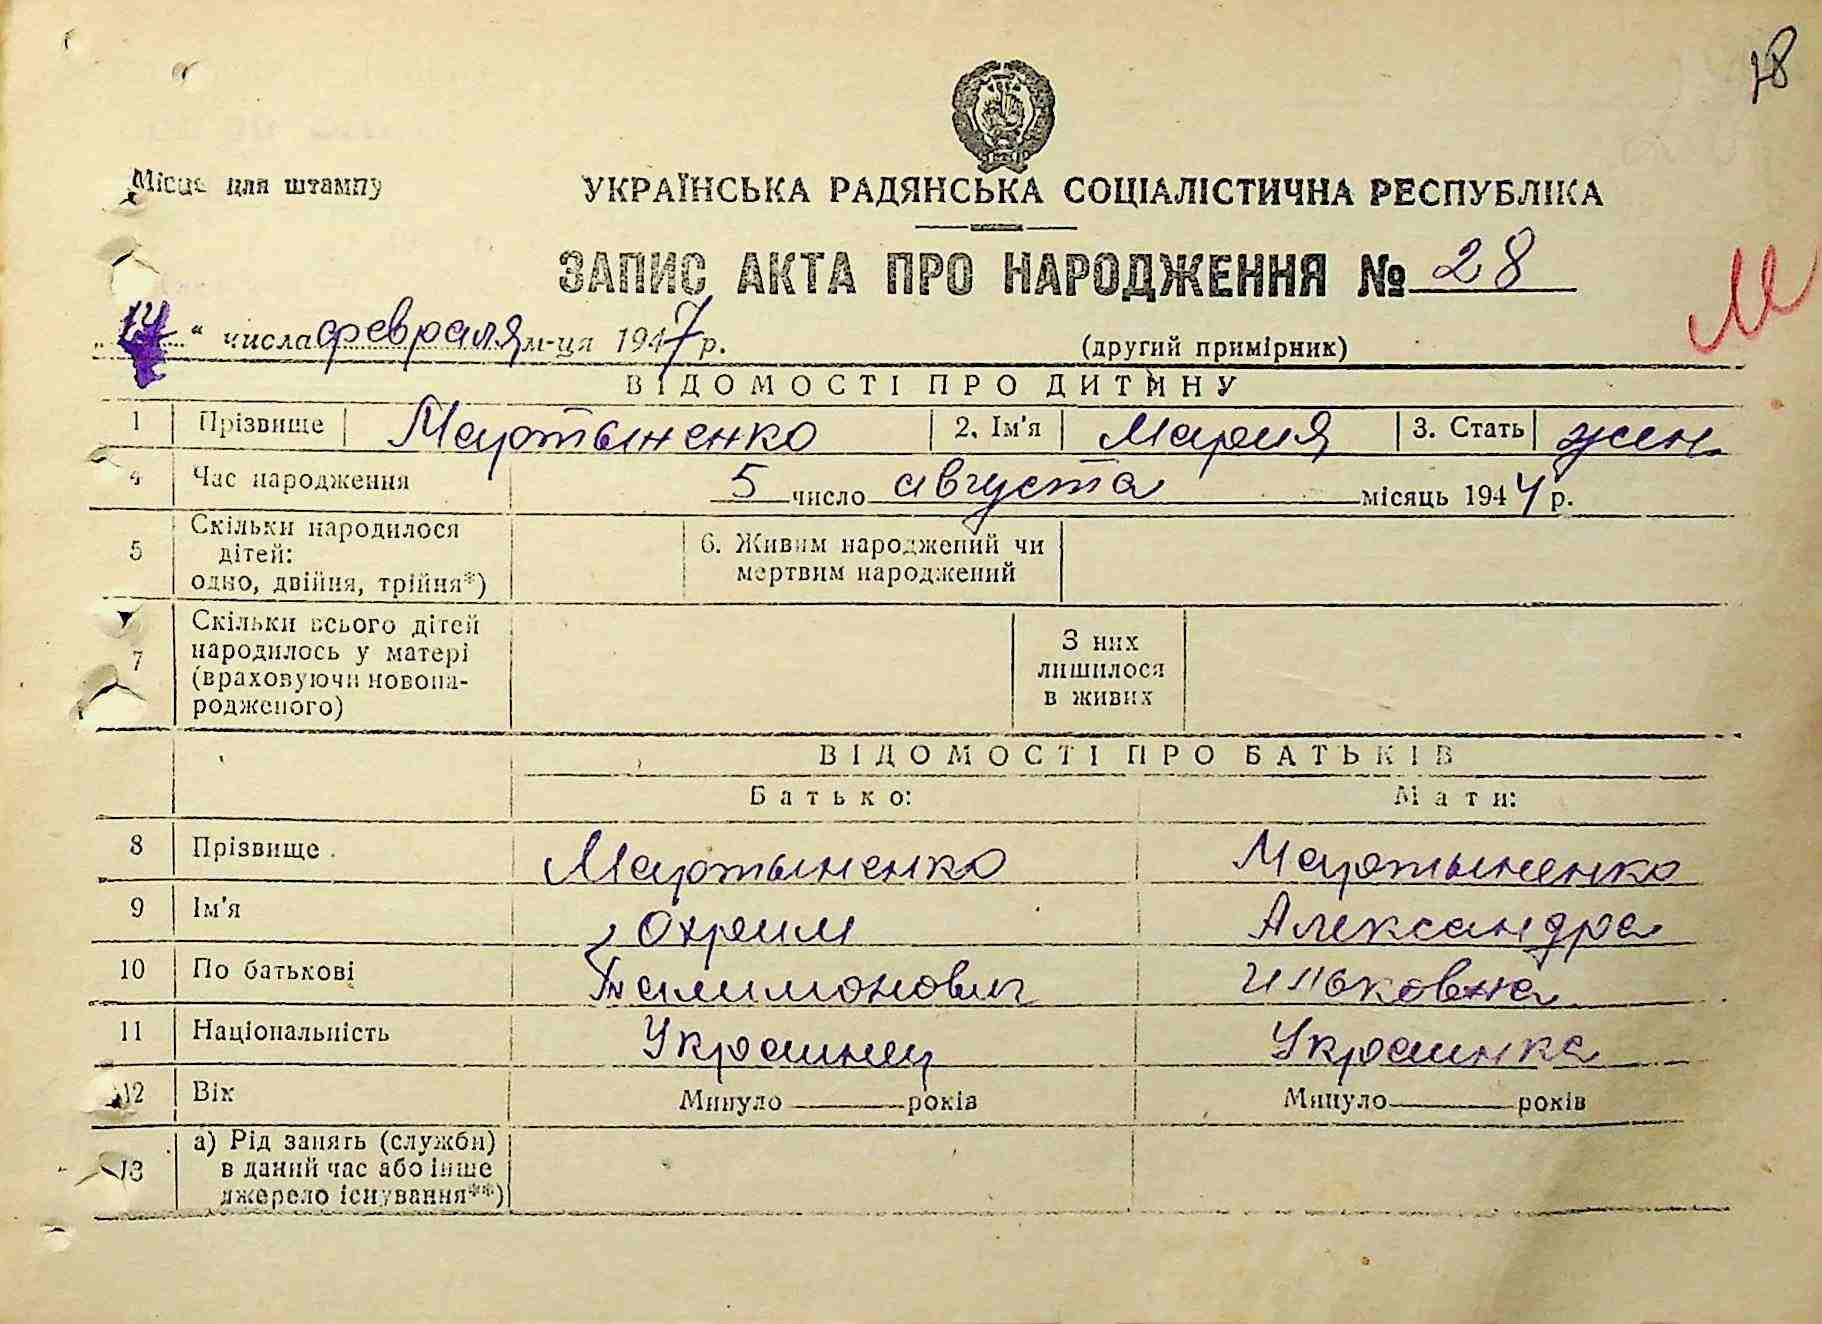 28
Місце для штампу
УКРАЇНСЬКА РАДЯНСЬКА СОЦІАЛІСТИЧНА РЕСПУБЛІКА
ЗАПИС АКТА ПРО НАРОДЖЕННЯ № 28
М
„14“ числа февраля м-ця 1947 р.
(другий примірник)
ВІДОМОСТІ ПРО ДИТИНУ
1 Прізвище Мартыненко 2. Ім'я Мария 3. Стать жен.
4 Час народження 5 число августа місяць 1944 р.
5 Скільки народилося дітей: одно, двійня, трійня*) 6. Живим народжений чи мертвим народжений
7 Скільки всього дітей народилось у матері (враховуючи новона-родженого) З них лишилося в живих
ВІДОМОСТІ ПРО БАТЬКІВ
Батько: Мати:
8 Прізвище Мартыненко Мартыненко
9 Ім'я Охрим Александра
10 По батькові Ильковна
11 Національність Украинец Украинка
12 Вік Минуло років Минуло років
13 а) Рід занять (служби) в даний час або інше джерело існування**)